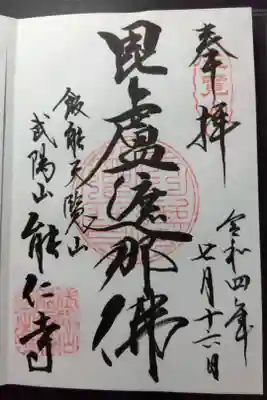 奉拝
令和四年
七月十六日
毘盧遮那佛
飯能天覧山
武陽山
能仁寺